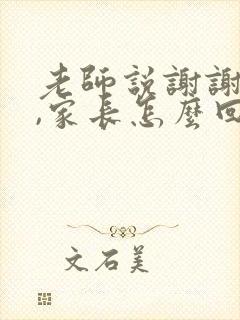 老師説謝謝
,家長怎麽回
文石美